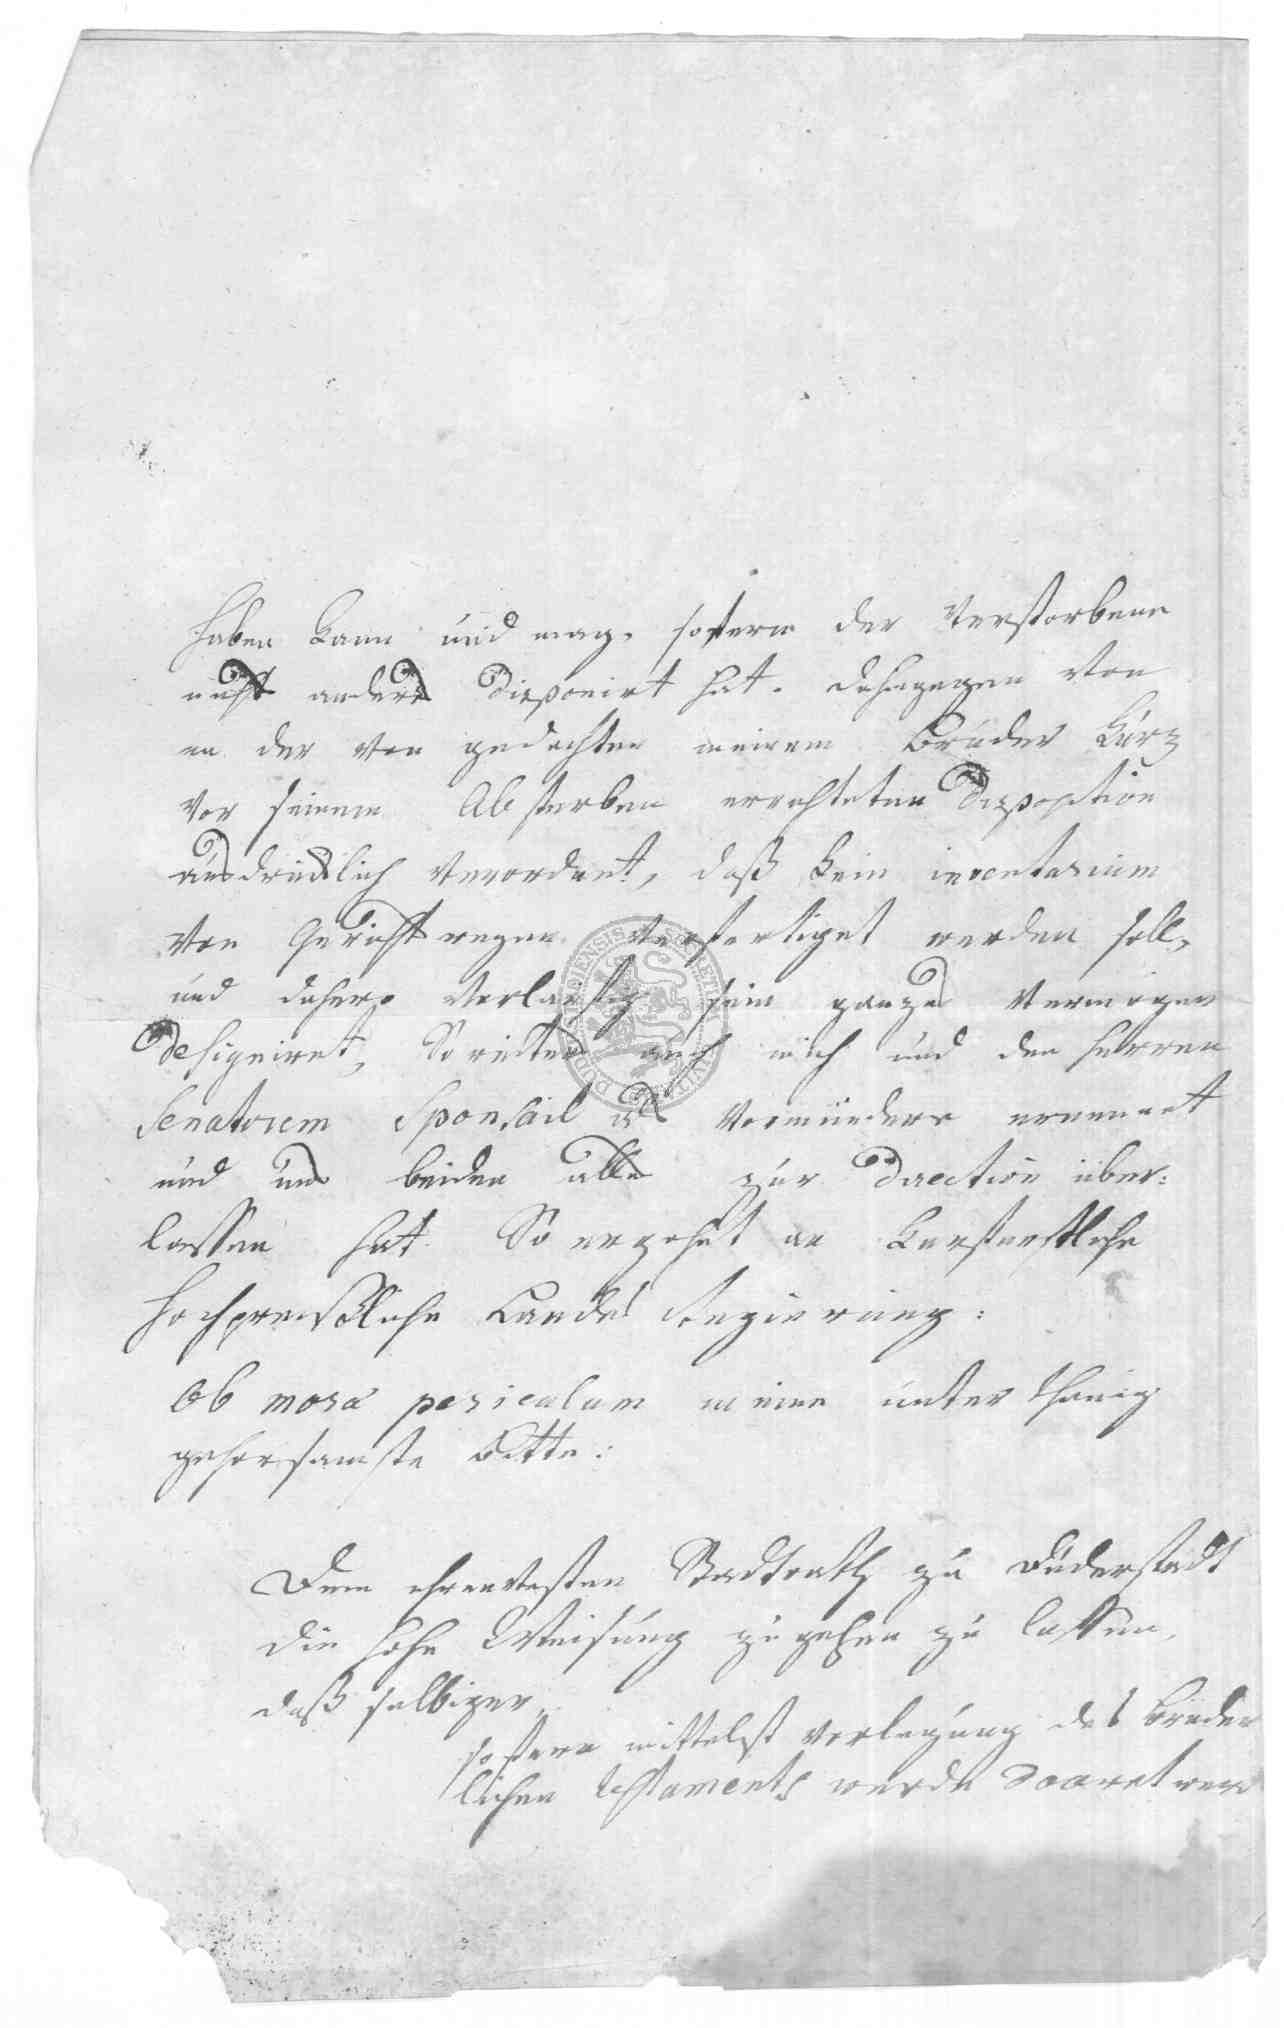 haben kann und mag. sofern der Verstorbene
nicht anders disponirt hat. dahingegen von
en der von gedachten meinem Bruder kurz
vor seinem Absterben errichteten Disposition
ausdrücklich verordnet, daß kein inventarium
von Gerichtswegen verfertiget werden soll,
und dahero sein ganzes Vermögen
designiret, So auch mich und den Herren
Senatorem Sponsail als Vormündere ernennet
und uns beiden alles zur Direction über:
lassen hat. So ergehet an Kurfürstliche
Hochpreißliche Landes Regierung:
ob mora periculum meine unterthänig
gehorsamste Bitte:
Dem ehrenvesten Stadtrath zu Duderstadt
die hohe Weisung zugehen zu lassen,
daß selbiger,
sofern mittelst Verlegung des brüder
lichen Testaments werde docaret wer